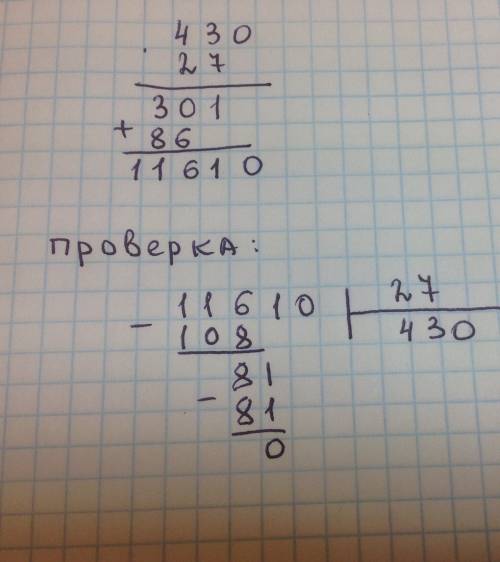 · 430
27
301
+ 86
11610
проверка:
- 11610 | 27
108 430
81
- 81
0